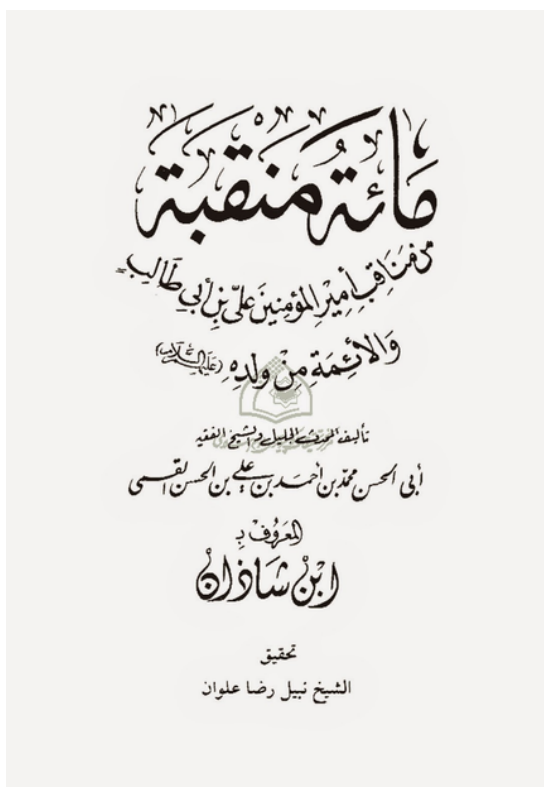 مَائة مَنقبَة
من مَنَاقبِ أمِيرِ المؤمِنينَ عَليّ بنِ أبي طَالِب
وَالأئِمَّةِ مِنْ ولدِهِ (عَليهمُ السَّلام)
تأليف المحدث الجليل والشيخ الفقيه
أبي الحسن محمّد بن أحمد بن علي بن الحسن القمي
المعَروُف بِـ
ابْنُ شَاذَانْ
تحقيق
الشيخ نبيل رضا علوان